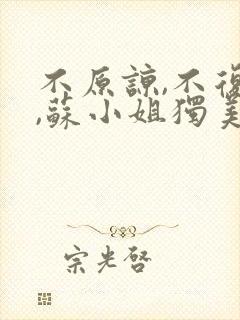 不原諒,不復
,蘇小姐獨美
宗光啓